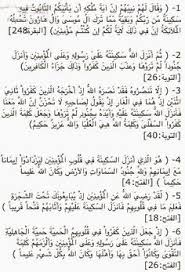 1- ( وَقَالَ لَهُمْ نِبِيُّهُمْ إِنَّ آيَةَ مُلْكِهِ أَن يَأْتِيَكُمُ التَّابُوتُ فِيهِ
سَكِينَةٌ مِّن رَّبِّكُمْ وَبَقِيَّةٌ مِّمَّا تَرَكَ آلُ مُوسَىٰ وَآلُ هَارُونَ تَحْمِلُهُ
الْمَلَائِكَةُ إِنَّ فِي ذَٰلِكَ لَآيَةً لَّكُمْ إِن كُنتُم مُّؤْمِنِينَ) [البقرة248]
2- ( ثُمَّ أَنزَلَ اللَّهُ سَكِينَتَهُ عَلَىٰ رَسُولِهِ وَعَلَى الْمُؤْمِنِينَ وَأَنزَلَ
جُنُودًا لَّمْ تَرَوْهَا وَعَذَّبَ الَّذِينَ كَفَرُوا وَذَٰلِكَ جَزَاءُ الْكَافِرِينَ)
[التوبة:26]
3- ( إِلَّا تَنصُرُوهُ فَقَدْ نَصَرَهُ اللَّهُ إِذْ أَخْرَجَهُ الَّذِينَ كَفَرُوا ثَانِيَ
اثْنَيْنِ إِذْ هُمَا فِي الْغَارِ إِذْ يَقُولُ لِصَاحِبِهِ لَا تَحْزَنْ إِنَّ اللَّهَ مَعَنَا
فَأَنزَلَ اللَّهُ سَكِينَتَهُ عَلَيْهِ وَأَيَّدَهُ بِجُنُودٍ لَّمْ تَرَوْهَا وَجَعَلَ كَلِمَةَ
الَّذِينَ كَفَرُوا السُّفْلَىٰ وَكَلِمَةُ اللَّهِ هِيَ الْعُلْيَا وَاللَّهُ عَزِيزٌ حَكِيمٌ)
[التوبة:40]
4- ( هُوَ الَّذِي أَنزَلَ السَّكِينَةَ فِي قُلُوبِ الْمُؤْمِنِينَ لِيَزْدَادُوا إِيمَانًا
مَّعَ إِيمَانِهِمْ وَلِلَّهِ جُنُودُ السَّمَاوَاتِ وَالْأَرْضِ وَكَانَ اللَّهُ عَلِيمًا
حَكِيمًا ) [الفتح:4]
5- ( لَقَدْ رَضِيَ اللَّهُ عَنِ الْمُؤْمِنِينَ إِذْ يُبَايِعُونَكَ تَحْتَ الشَّجَرَةِ
فَعَلِمَ مَا فِي قُلُوبِهِمْ فَأَنزَلَ السَّكِينَةَ عَلَيْهِمْ وَأَثَابَهُمْ فَتْحًا قَرِيبًا )
[الفتح:18]
6- ( إِذْ جَعَلَ الَّذِينَ كَفَرُوا فِي قُلُوبِهِمُ الْحَمِيَّةَ حَمِيَّةَ الْجَاهِلِيَّةِ
فَأَنزَلَ اللَّهُ سَكِينَتَهُ عَلَىٰ رَسُولِهِ وَعَلَى الْمُؤْمِنِينَ وَأَلْزَمَهُمْ كَلِمَةَ
التَّقْوَىٰ وَكَانُوا أَحَقَّ بِهَا وَأَهْلَهَا وَكَانَ اللَّهُ بِكُلِّ شَيْءٍ عَلِيمًا )
[الفتح:26]